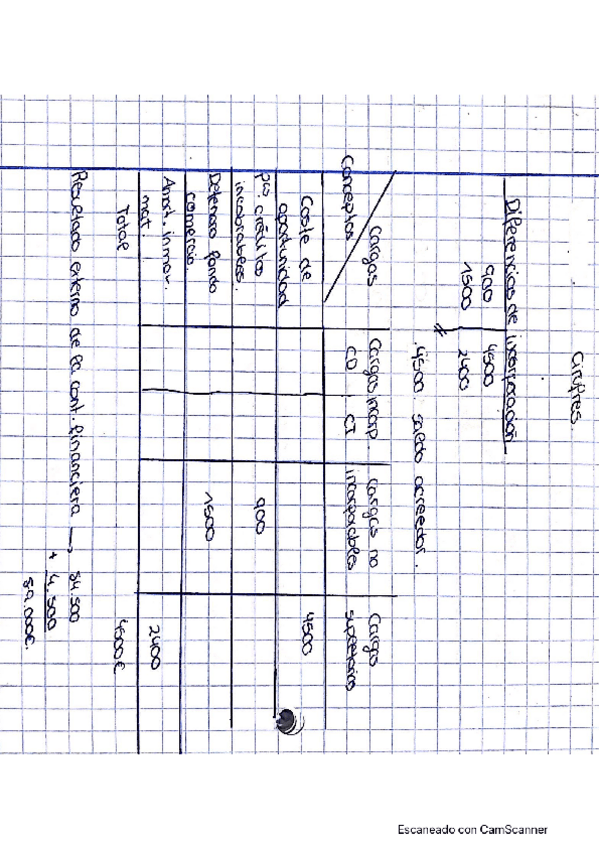 Cinfres.
Diferencias de incorporación
900 4500
1500 2400
4500 saldo acreedor.
Cargas
Conceptos
Cargas incorp.
CD CI
Cargas no
incorporables
Cargas
supletorias
Coste de
oportunidad 4500
pro créditos
incobrables. 900
Deterioro fondo
comercio. 1500
Amort. inmov.
mat. 2400
Total 4500€
Resultado externo de la cont. financiera → 84.500
+ 4.500
89.000€.
Escaneado con CamScanner